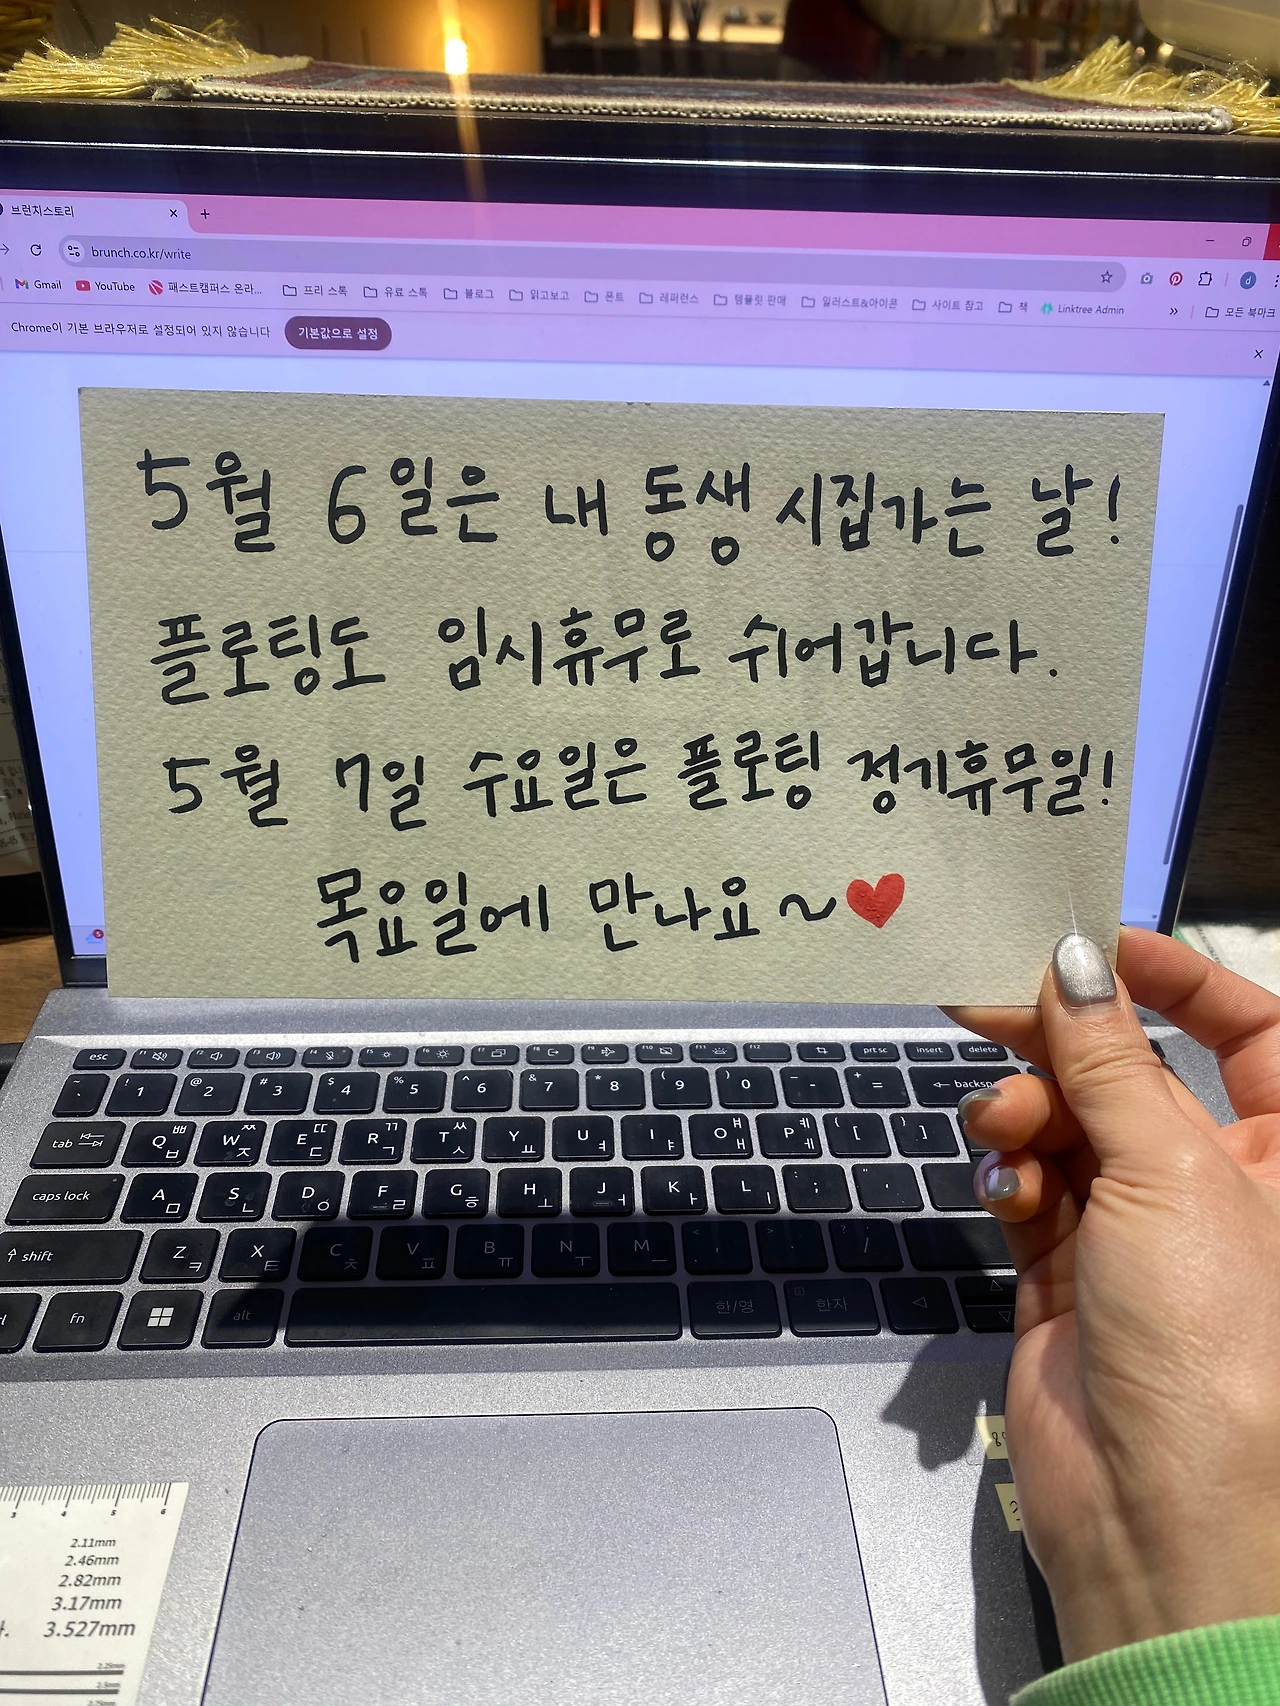 브런치스토리
brunch.co.kr/write
Gmail YouTube 패스트캠퍼스 온라... 프리 스톡 유료 스톡 블로그 읽고보고 폰트 레퍼런스 템플릿 판매 일러스트&아이콘 사이트 참고 책 Linktree Admin » 모든 북마크
Chrome이 기본 브라우저로 설정되어 있지 않습니다 기본값으로 설정
5월 6일은 내 동생 시집가는 날!
플로팅도 임시휴무로 쉬어갑니다.
5월 7일 수요일은 플로팅 정기휴무일!
목요일에 만나요~♥
esc f1 f2 f3 f4 f5 f6 f7 f8 f9 f10 f11 f12 prt sc insert delete
~ ` ! 1 @ 2 # 3 $ 4 % 5 ^ 6 & 7 * 8 ( 9 ) 0 _ - + = backsp
tab Q ㅃ ㅂ W ㅉ ㅈ E ㄸ ㄷ R ㄲ ㄱ T ㅆ ㅅ Y ㅛ U ㅕ I ㅑ O ㅒ ㅐ P ㅖ ㅔ { [ } ]
caps lock A ㅁ S ㄴ D ㅇ F ㄹ G ㅎ H ㅗ J ㅓ K ㅏ L ㅣ : ; " '
shift Z ㅋ X ㅌ C ㅊ V ㅍ B ㅠ N ㅜ M ㅡ < , > . ? /
fn alt 한/영 한자
3 4 5 6
2.11mm
2.46mm
2.82mm
3.17mm
3.527mm
2.25mm
2.5mm
2.75mm